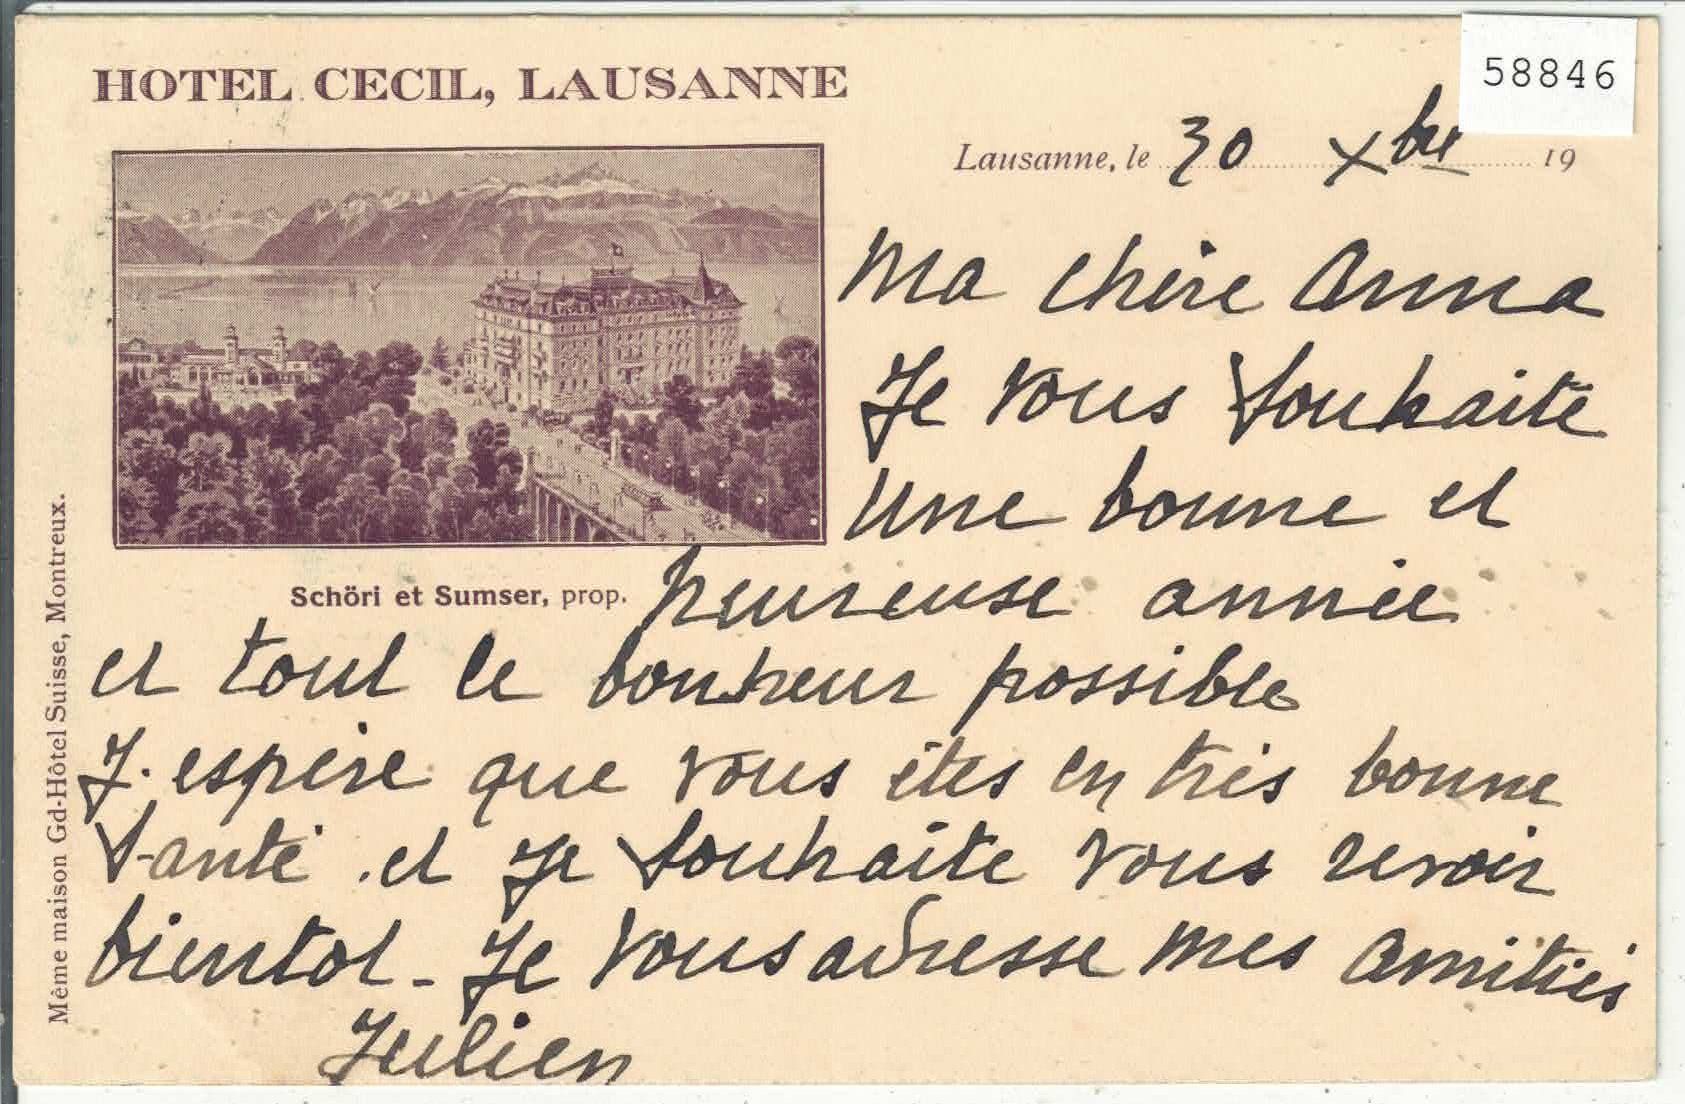 HOTEL CECIL, LAUSANNE
58846
Lausanne, le 30 Xbre 19
Ma chère Anna
Je vous souhaite
une bonne et
heureuse année
Schöri et Sumser, prop.
et tout le bonheur possible
J'espère que vous êtes en très bonne
santé. et je souhaite vous revoir
bientot - Je vous adresse mes amitiés
Julien
Même maison Gd-Hôtel Suisse, Montreux.